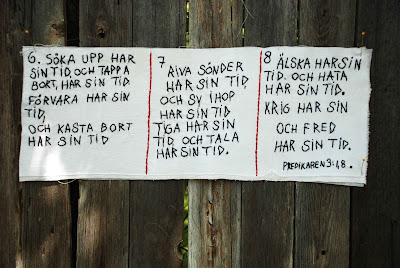 6. SÖKA UPP HAR
SIN TID, OCH TAPPA
BORT, HAR SIN TID
FÖRVARA HAR SIN
TID,
OCH KASTA BORT
HAR SIN TID
7
RIVA SÖNDER
HAR SIN TID,
OCH SY IHOP
HAR SIN TID
TIGA HAR SIN
TID OCH TALA
HAR SIN TID.
8 ÄLSKA HAR SIN
TID. OCH HATA
HAR SIN TID.
KRIG HAR SIN
OCH FRED
HAR SIN TID.
PREDIKAREN 3:1,8.